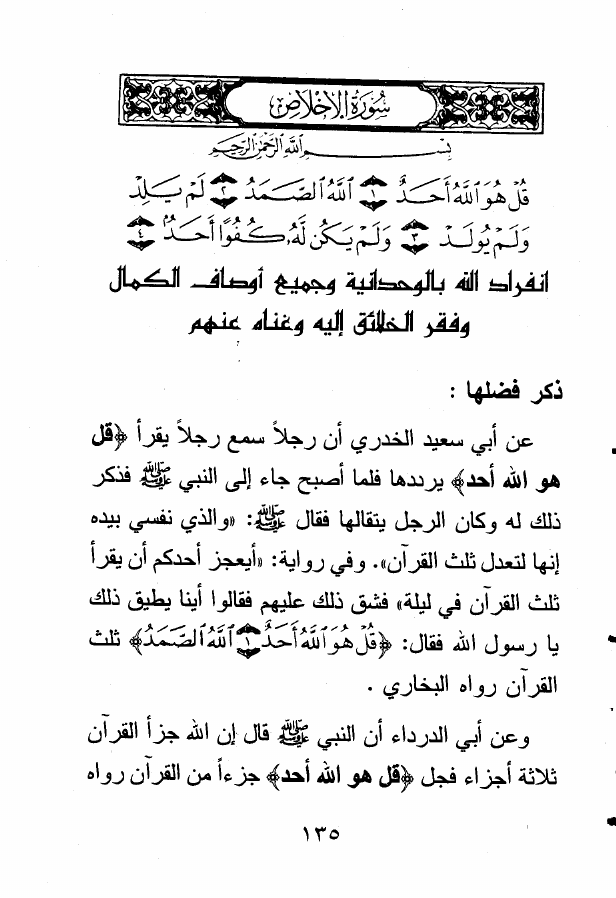 سُورَةُ الإِخْلَاصِ
بِسْمِ اللَّهِ الرَّحْمَٰنِ الرَّحِيمِ
قُلْ هُوَ ٱللَّهُ أَحَدٌ ١ ٱللَّهُ ٱلصَّمَدُ ٢ لَمْ يَلِدْ
وَلَمْ يُولَدْ ٣ وَلَمْ يَكُن لَّهُۥ كُفُوًا أَحَدٌۢ ٤
انفراد الله بالوحدانية وجميع أوصاف الكمال
وفقر الخلائق إليه وغناه عنهم
ذكر فضلها :
عن أبي سعيد الخدري أن رجلاً سمع رجلاً يقرأ ﴿قل
هو الله أحد﴾ يرددها فلما أصبح جاء إلى النبي ﷺ فذكر
ذلك له وكان الرجل يتقالها فقال ﷺ: «والذي نفسي بيده
إنها لتعدل ثلث القرآن». وفي رواية: «أيعجز أحدكم أن يقرأ
ثلث القرآن في ليلة» فشق ذلك عليهم فقالوا أينا يطيق ذلك
يا رسول الله فقال: ﴿قُلْ هُوَ ٱللَّهُ أَحَدٌ ١ ٱللَّهُ ٱلصَّمَدُ﴾ ثلث
القرآن رواه البخاري .
وعن أبي الدرداء أن النبي ﷺ قال إن الله جزأ القرآن
ثلاثة أجزاء فجل ﴿قل هو الله أحد﴾ جزءاً من القرآن رواه
١٣٥